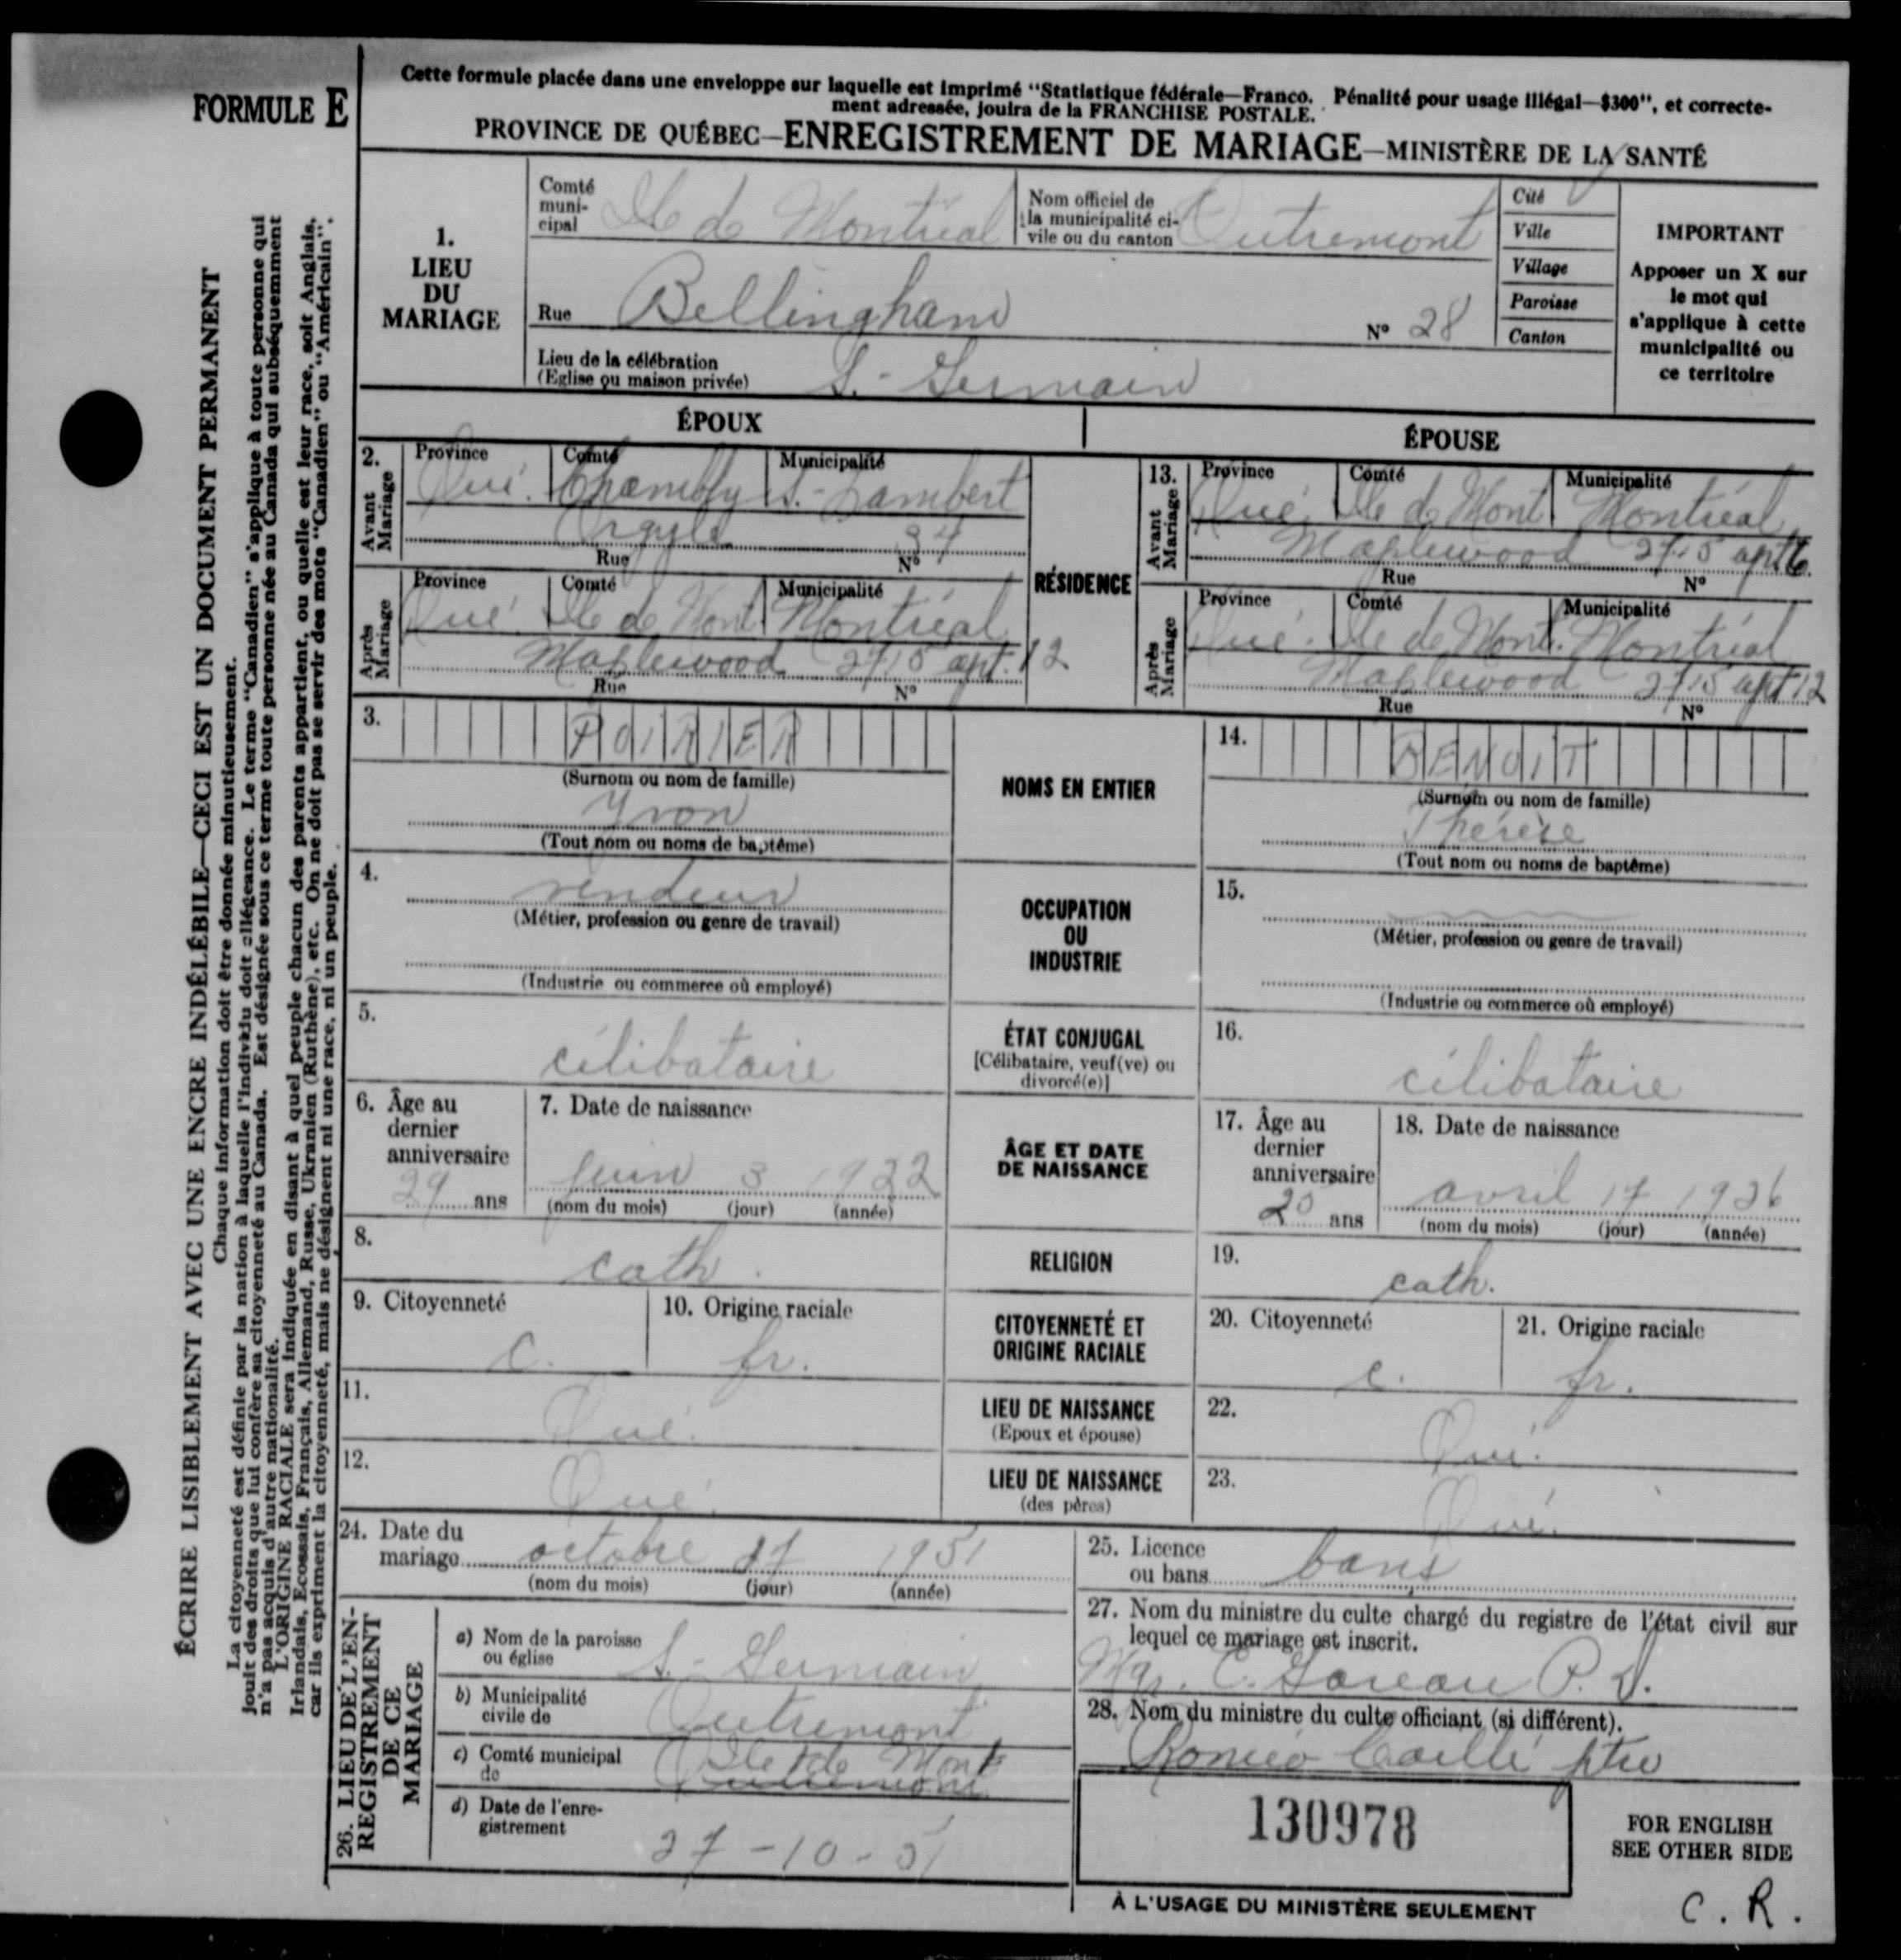 Cette formule placée dans une enveloppe sur laquelle est imprimé "Statistique fédérale—Franco. Pénalité pour usage illégal—$300", et correcte-
ment adressée, jouira de la FRANCHISE POSTALE.
FORMULE E
PROVINCE DE QUÉBEC—ENREGISTREMENT DE MARIAGE—MINISTÈRE DE LA SANTÉ
ÉCRIRE LISIBLEMENT AVEC UNE ENCRE INDÉLÉBILE—CECI EST UN DOCUMENT PERMANENT
Chaque information doit être donnée minutieusement.
La citoyenneté est définie par la nation à laquelle l'individu doit allégeance. Le terme "Canadien" s'applique à toute personne qui
jouit des droits que lui confère sa citoyenneté au Canada. Est désignée sous ce terme toute personne née au Canada qui subséquemment
n'a pas acquis d'autre nationalité.
L'ORIGINE RACIALE sera indiquée en disant à quel peuple chacun des parents appartient, ou quelle est leur race, soit Anglais,
Irlandais, Ecossais, Français, Allemand, Russe, Ukranien (Ruthène), etc. On ne doit pas se servir des mots "Canadien" ou "Américain",
car ils expriment la citoyenneté, mais ne désignent ni une race, ni un peuple.
1.
LIEU
DU
MARIAGE
Comté
muni-
cipal Ile de Montréal
Nom officiel de
la municipalité ci-
vile ou du canton Outremont
Cité
Ville
Village
Paroisse
Canton
IMPORTANT
Apposer un X sur
le mot qui
s'applique à cette
municipalité ou
ce territoire
Rue Bellingham N° 28
Lieu de la célébration
(Eglise ou maison privée) S.-Germain
ÉPOUX
ÉPOUSE
2. Avant Mariage
Province Comté Municipalité
Qué. Chambly S.-Lambert
Argyle 34
Rue N°
Après Mariage
Province Comté Municipalité
Qué. Ile de Mont. Montréal
Maplewood 2715 apt. 12
Rue N°
RÉSIDENCE
13. Avant Mariage
Province Comté Municipalité
Qué. Ile de Mont Montréal
Maplewood 2715 apt 6
Rue N°
Après Mariage
Province Comté Municipalité
Qué. Ile de Mont. Montréal
Maplewood 2715 apt 12
Rue N°
3. POIRIER
(Surnom ou nom de famille)
Yvon
(Tout nom ou noms de baptême)
NOMS EN ENTIER
14. BENOIT
(Surnom ou nom de famille)
Thérèse
(Tout nom ou noms de baptême)
4. vendeur
(Métier, profession ou genre de travail)
(Industrie ou commerce où employé)
OCCUPATION
OU
INDUSTRIE
15.
(Métier, profession ou genre de travail)
(Industrie ou commerce où employé)
5. célibataire
ÉTAT CONJUGAL
[Célibataire, veuf(ve) ou
divorcé(e)]
16. célibataire
6. Âge au
dernier
anniversaire
29 ans
7. Date de naissance
juin 3 1922
(nom du mois) (jour) (année)
ÂGE ET DATE
DE NAISSANCE
17. Âge au
dernier
anniversaire
25 ans
18. Date de naissance
avril 17 1926
(nom du mois) (jour) (année)
8. cath.
RELIGION
19. cath.
9. Citoyenneté
c.
10. Origine raciale
fr.
CITOYENNETÉ ET
ORIGINE RACIALE
20. Citoyenneté
c.
21. Origine raciale
fr.
11. Qué.
LIEU DE NAISSANCE
(Epoux et épouse)
22. Qué.
12. Qué.
LIEU DE NAISSANCE
(des pères)
23. Qué.
24. Date du
mariage octobre 27 1951
(nom du mois) (jour) (année)
25. Licence
ou bans bans
26. LIEU DE L'EN-
REGISTREMENT
DE CE
MARIAGE
a) Nom de la paroisse
ou église S.-Germain
b) Municipalité
civile de Outremont
c) Comté municipal
de Ile de Mont
Outremont
d) Date de l'enre-
gistrement 27-10-51
27. Nom du ministre du culte chargé du registre de l'état civil sur
lequel ce mariage est inscrit.
Mgr. E. Gareau P. D.
28. Nom du ministre du culte officiant (si différent).
Roméo Caillé ptre
130978
À L'USAGE DU MINISTÈRE SEULEMENT
FOR ENGLISH
SEE OTHER SIDE
C. R.